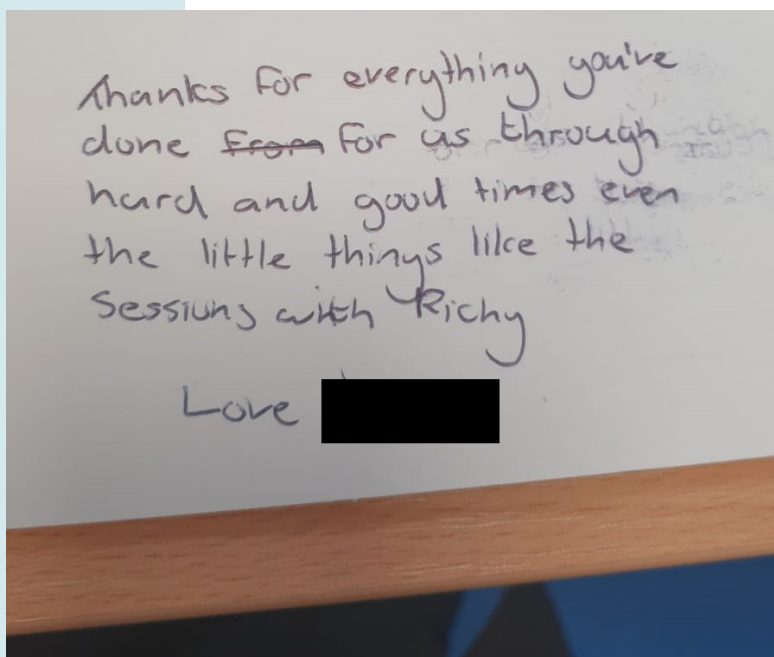 Thanks for everything you've
done ~~from~~ for us through
hard and good times even
the little things like the
Sessions with Richy
Love